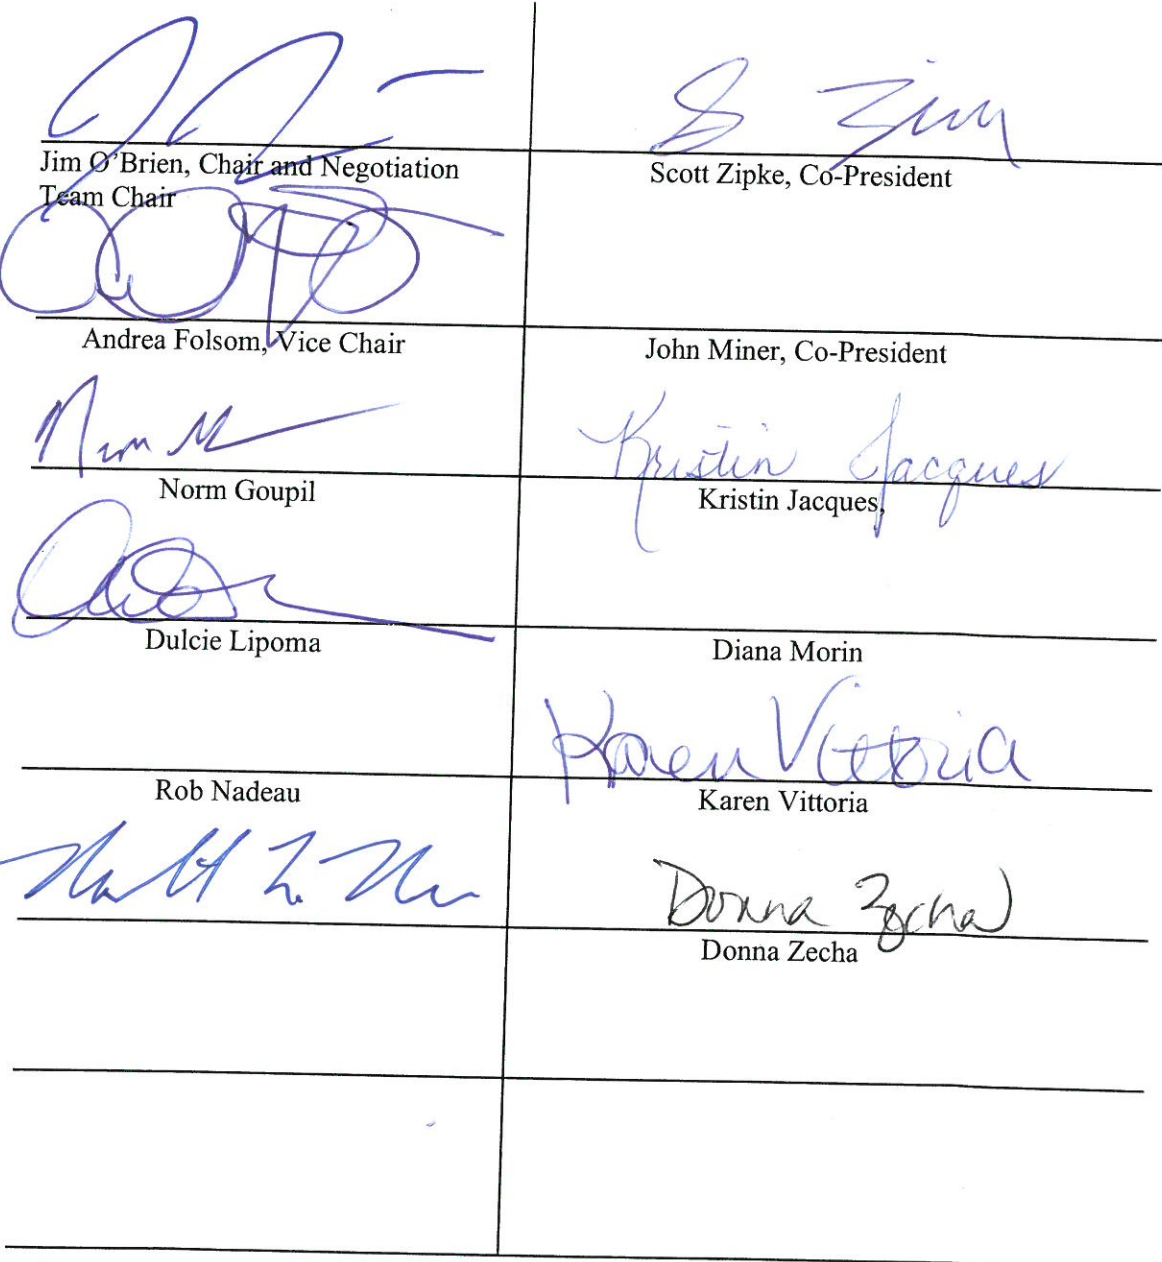 Jim O'Brien, Chair and Negotiation
Team Chair
Andrea Folsom, Vice Chair
Norm Goupil
Dulcie Lipoma
Rob Nadeau
S Zip
Scott Zipke, Co-President
John Miner, Co-President
Kristin Jacques
Kristin Jacques,
Diana Morin
Karen Vittoria
Karen Vittoria
Donna Zecha
Donna Zecha